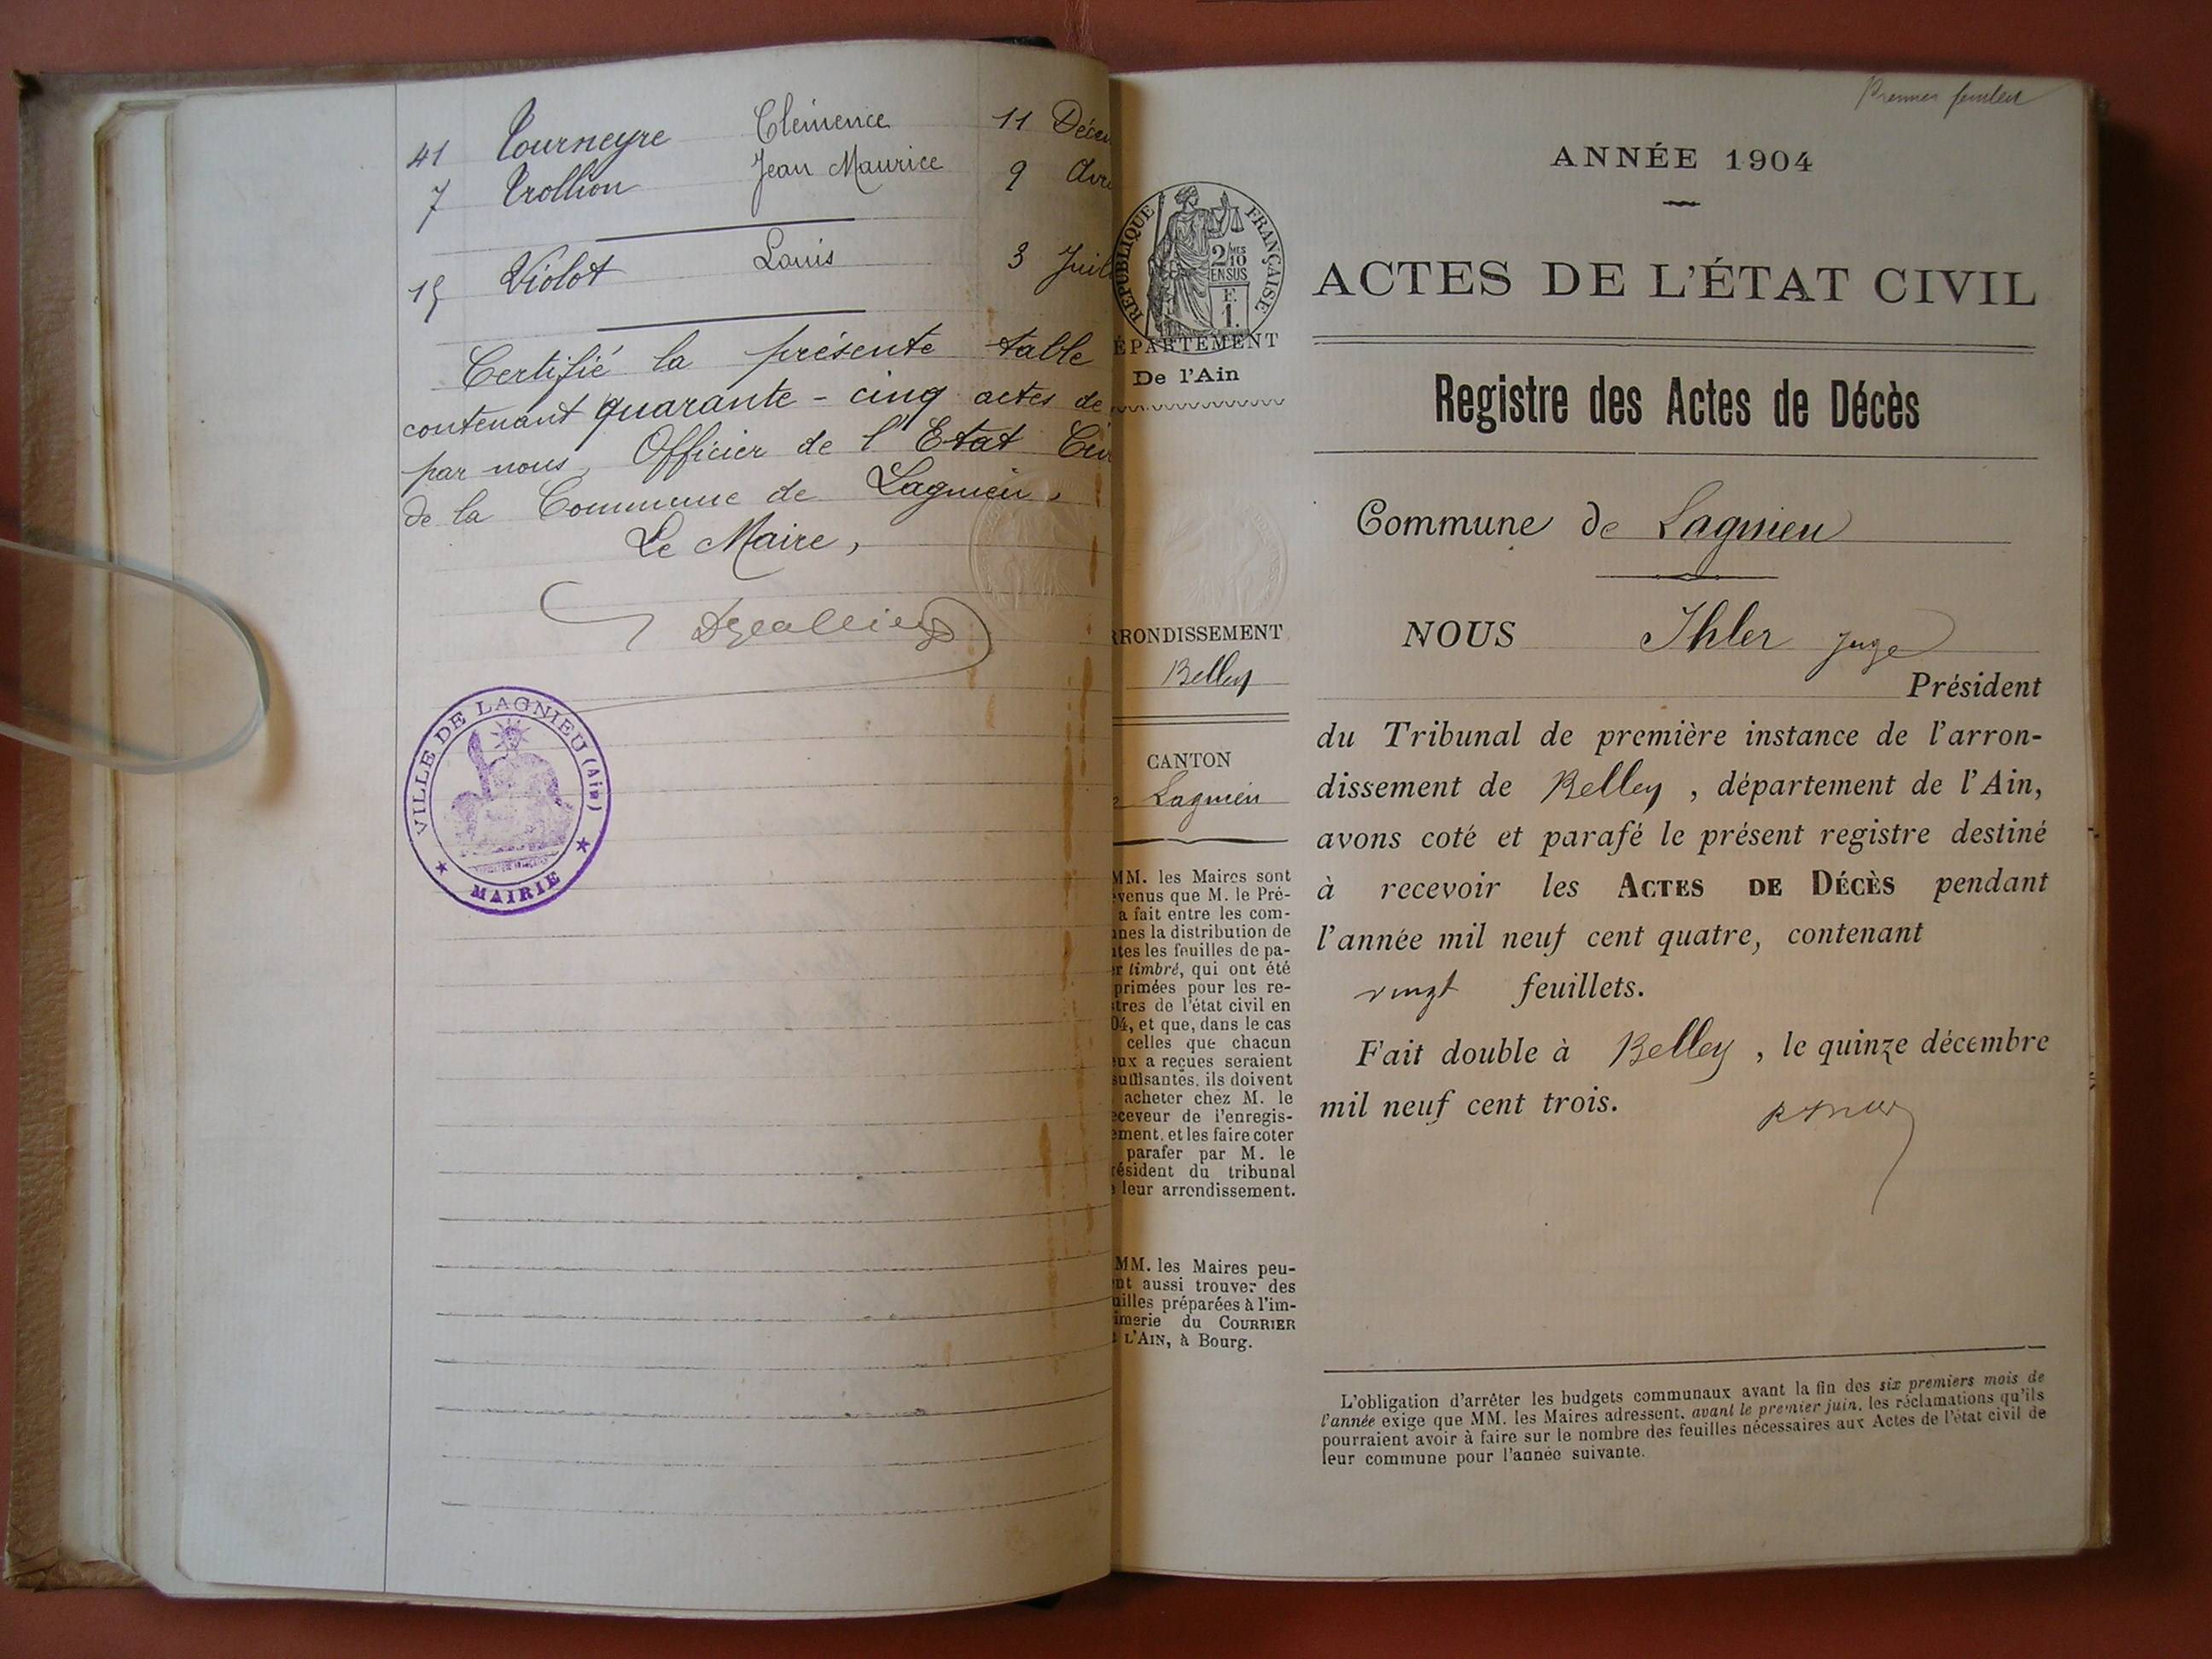 41 Tourneyre Clémence 11 Décem
7 Trollion Jean Maurice 9 Avri
15 Violot Louis 3 Juil
Certifié la présente table
contenant quarante-cinq actes de
par nous, Officier de l'Etat Civ
de la Commune de Lagnieu.
Le Maire,
VILLE DE LAGNIEU (Ain)
MAIRIE
Premier feuillet
RÉPUBLIQUE FRANÇAISE
2/10MES
EN SUS
F.
1.
ÉPARTEMENT
De l'Ain
RRONDISSEMENT
Belley
CANTON
Lagnieu
MM. les Maires sont
venus que M. le Pré-
a fait entre les com-
nes la distribution de
tes les feuilles de pa-
r timbré, qui ont été
primées pour les re-
tres de l'état civil en
04, et que, dans le cas
celles que chacun
eux a reçues seraient
suffisantes, ils doivent
acheter chez M. le
eceveur de l'enregis-
ement, et les faire coter
parafer par M. le
résident du tribunal
leur arrondissement.
MM. les Maires peu-
nt aussi trouver des
uilles préparées à l'im-
imerie du COURRIER
L'AIN, à Bourg.
ANNÉE 1904
ACTES DE L'ÉTAT CIVIL
Registre des Actes de Décès
Commune de Lagnieu
NOUS Ihler juge
Président
du Tribunal de première instance de l'arron-
dissement de Belley, département de l'Ain,
avons coté et parafé le présent registre destiné
à recevoir les ACTES DE DÉCÈS pendant
l'année mil neuf cent quatre, contenant
vingt feuillets.
Fait double à Belley, le quinze décembre
mil neuf cent trois.
L'obligation d'arrêter les budgets communaux avant la fin des six premiers mois de
l'année exige que MM. les Maires adressent, avant le premier juin, les réclamations qu'ils
pourraient avoir à faire sur le nombre des feuilles nécessaires aux Actes de l'état civil de
leur commune pour l'année suivante.